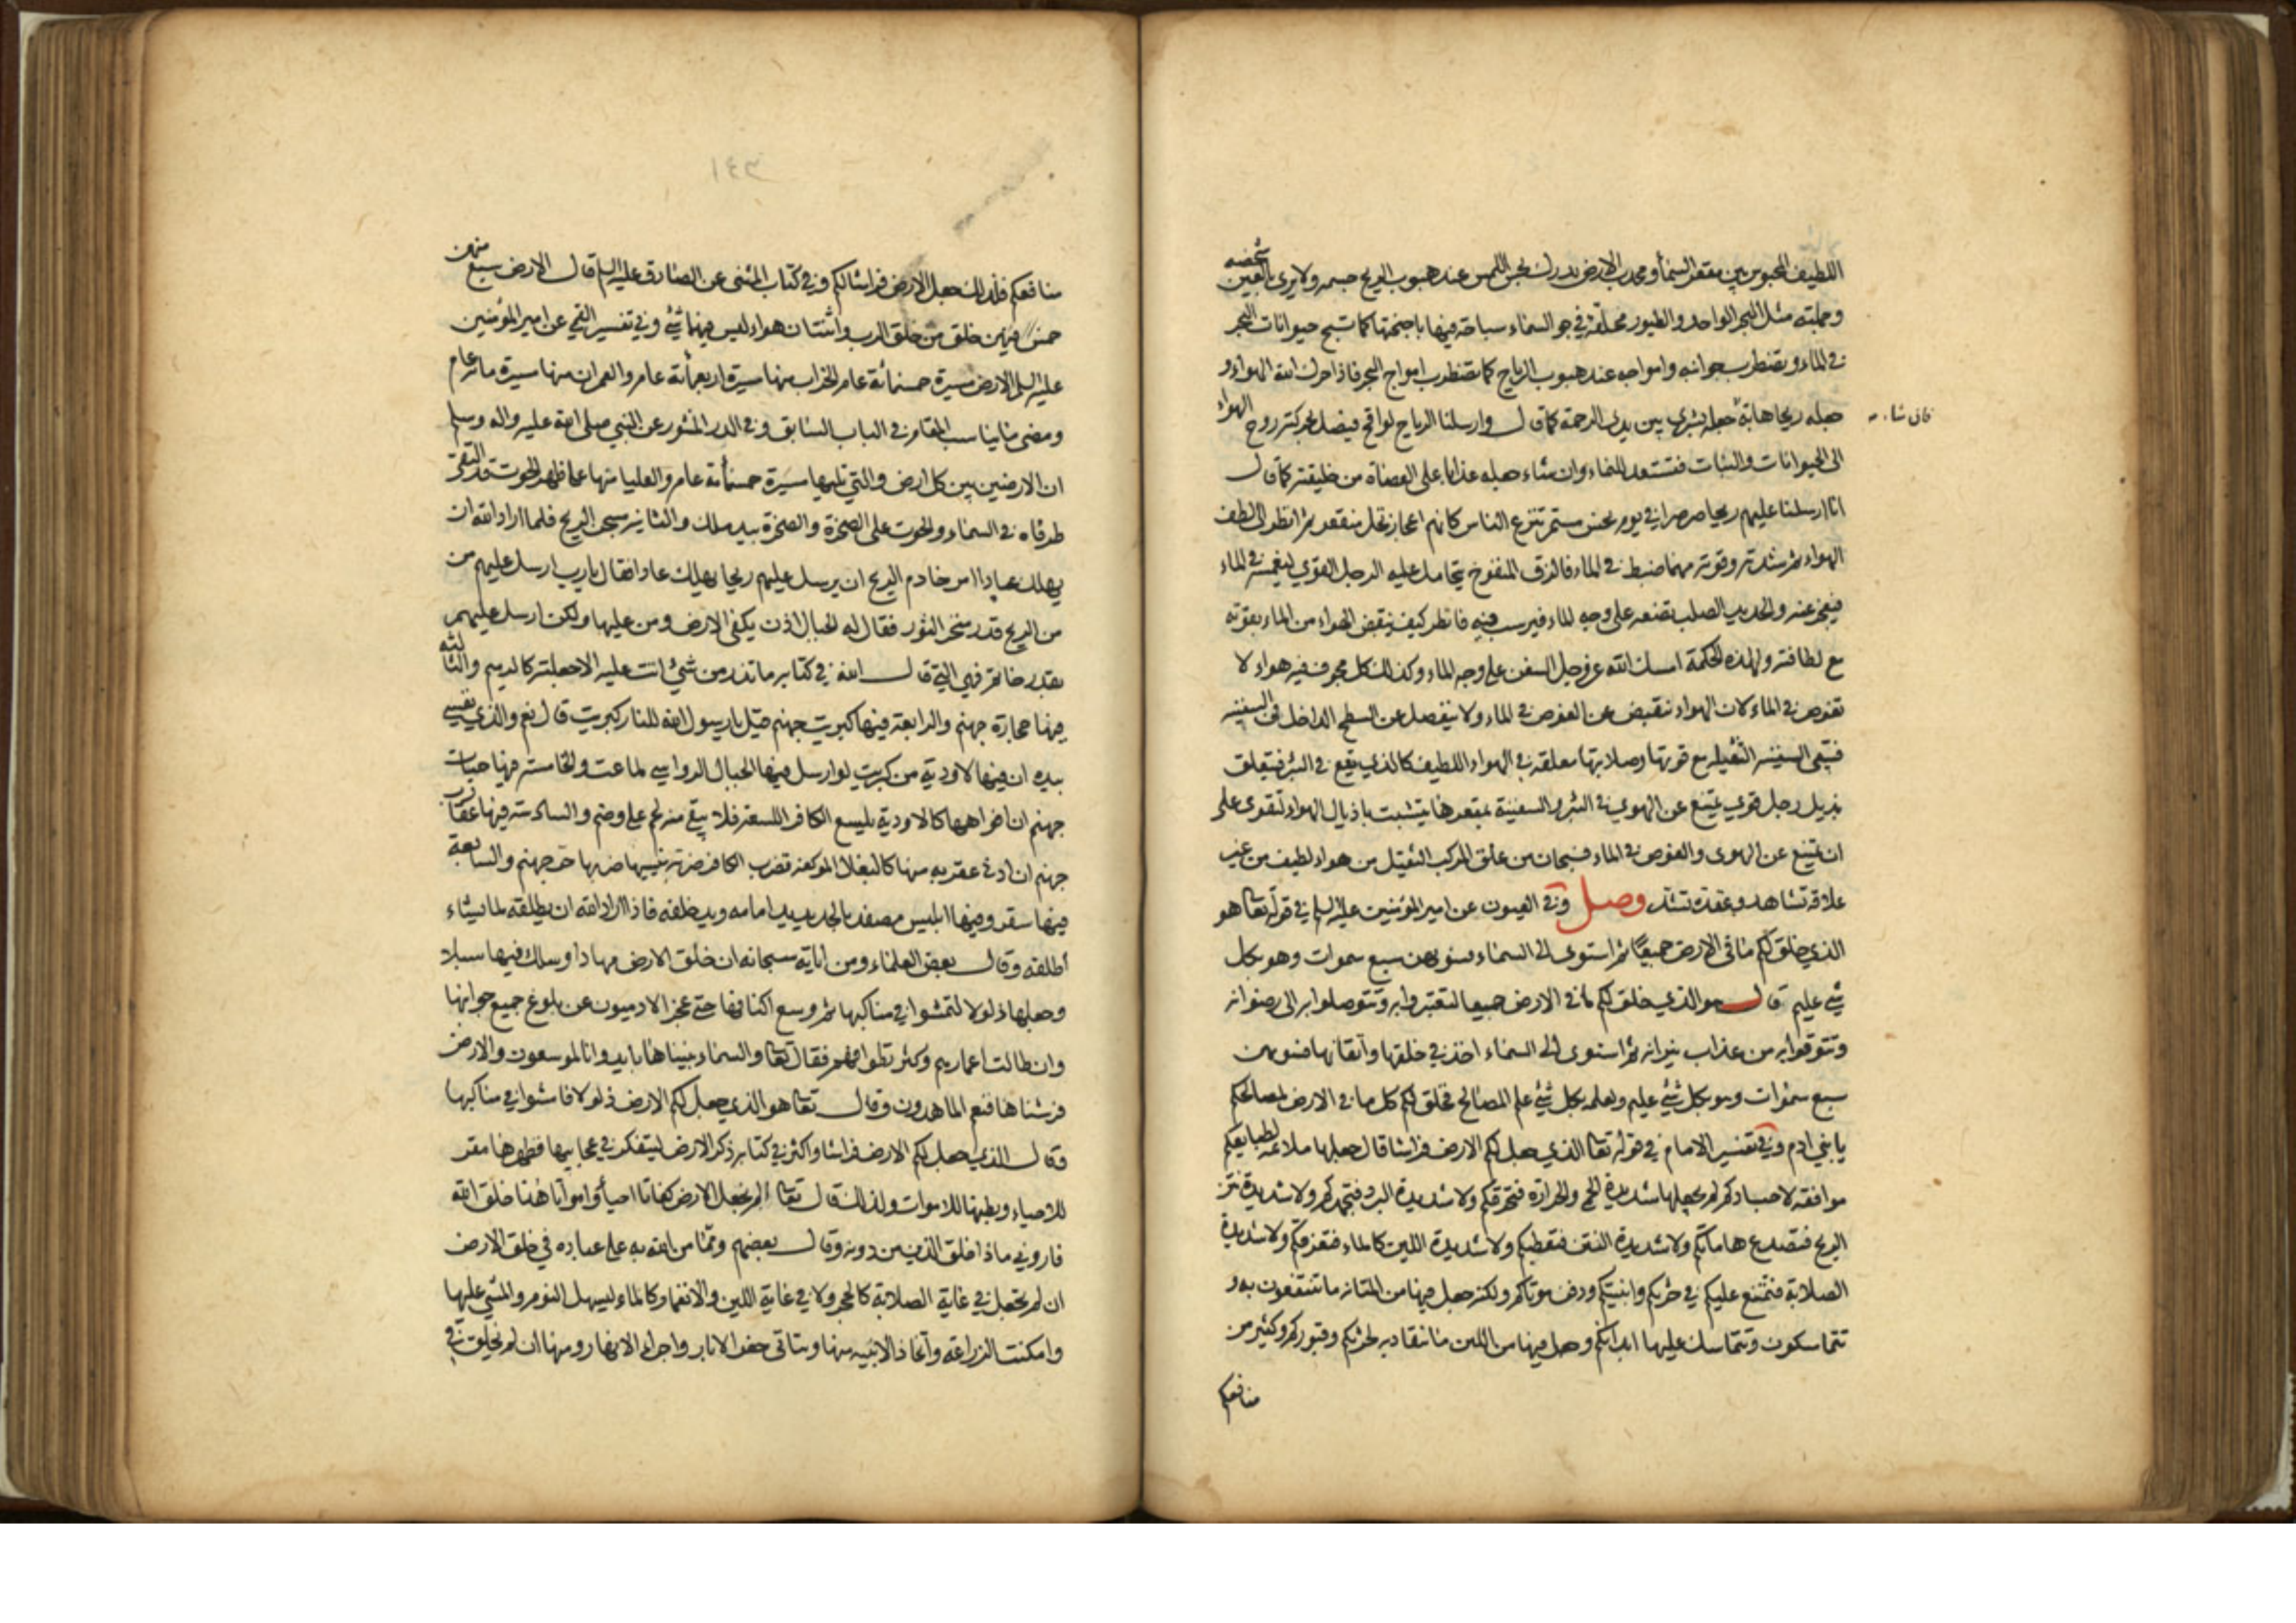 اللطيف المحبوس بين مقعر السماء ومحدب الارض يدرك بحس اللمس عند هبوب الريح جسمه ولا يرى بالعين شخصه
وجملته مثل البحر الواحد والطيور محلقة في جو السماء سباحة فيها باجنحتها كما تسبح حيوانات البحر
في الماء ويضطرب جوانبه وامواجه عند هبوب الرياح كما تضطرب امواج البحر فاذا حرك الله الهواء و
جعله ريحا هابة جعله بشرى بين يدى الرحمة كما قال وارسلنا الرياح لواقح فيصل بحركته روح الهواء
فان شاء
الى الحيوانات والنبات فتستعد للنماء وان شاء جعله عذابا على العصاة من خليقته كما قال
انا ارسلنا عليهم ريحا صرصرا في يوم نحس مستمر تنزع الناس كانهم اعجاز نخل منقعر ثم انظر الى لطف
الهواء ثم شدته وقوته مهما ضبط في الماء فالزق المنفوخ يتحامل عليه الرجل القوي ليغمسه في الماء
فيعجز عنه والحديد الصلب تضعه على وجه الماء فيرسب فيه فانظر كيف ينقبض الهواء من الماء بقوته
مع لطافته ولهذه الحكمة امسك الله عز وجل السفن على وجه الماء وكذلك كل مجوف فيه هواء لا
تغوص في الماء لان الهواء تنقبض عن الغوص في الماء ولا ينفصل عن السطح الداخل في السفينه
فتبقى السفينه الثقيله مع قوتها وصلابتها معلقه في الهواء اللطيف كالذي يقع في البئر فيتعلق
بذيل رجل قوي يمتنع عن الهوي في البئر والسفينة بمقعرها يتشبث باذيال الهواء لتقوى على
ان تمتنع عن الهوى والغوص في الماء فسبحان من علق المركب الثقيل من هواء لطيف من غير
علاقة تشاهد وعقدة تشد وصل وفي العيون عن امير المؤمنين عليه السلم في قوله تعالى هو
الذي خلق لكم ما في الارض جميعا ثم استوى الى السماء فسويهن سبع سموات وهو بكل
شئ عليم قال هو الذي خلق لكم ما في الارض جميعا لتعتبروا به وتتوصلوا به الى رضوانه
وتتوقوا به من عذاب نيرانه ثم استوى الى السماء اخذ في خلقها واتقانها فسويهن
سبع سموات وهو بكل شئ عليم ولعلمه بكل شئ علم المصالح فخلق لكم كل ما في الارض لمصالحكم
يا بني ادم وفي تفسير الامام في قوله تعالى الذي جعل لكم الارض فراشا قال جعلها ملائمة لطبايعكم
موافقه لاجسادكم لم يجعلها شديدة الحمى والحرارة فتحرقكم ولا شديدة البرد فتجمدكم ولا شديدة نتن
الريح فتصدع هاماتكم ولا شديدة النتن فتعطبكم ولا شديدة اللين كالماء فتغرقكم ولا شديدة
الصلابة فتمتنع عليكم في حرثكم وابنيتكم ودفن موتاكم ولكنه جعل فيها من المتانه ما تنتفعون به و
تتماسكون وتتماسك عليها ابدانكم وجعل فيها من اللين ما تنقاد به لحرثكم وقبوركم وكثير من
منافعكم
١٤٣
منافعكم فلذلك جعل الارض فراشا لكم وفي كتاب المثنى عن الصادق عليه السلم قال الارض سبع منهن
خمس فيهن خلق من خلق الرب واثنتان هواء ليس فيهما شئ وفي تفسير القمي عن امير المؤمنين
عليه السلم الارض مسيرة خمسمائة عام الخراب منها مسيرة اربعمائة عام والعمران منها مسيرة مائة عام
ومضى ما يناسب المقام في الباب السابق وفي الدر المنثور عن النبي صلى الله عليه واله وسلم
ان الارضين بين كل ارض والتي تليها مسيرة خمسمائة عام والعليا منها على ظهر الحوت قد التقى
طرفاه في السماء والحوت على الصخرة والصخرة بيد ملك والثانيه مسجن الريح فلما اراد الله ان
يهلك عادا امر خازم الريح ان يرسل عليهم ريحا يهلك عادا فقال يا رب ارسل عليهم من
من الريح قدر منخر الثور فقال له الجبار اذن يكفى الارض ومن عليها ولكن ارسل عليهم
بقدر خاتم فهي التي قال الله في كتابه ما تذر من شئ اتت عليه الا جعلته كالرميم والثالثه
فيها حجارة جهنم والرابعة فيها كبريت جهنم قيل يا رسول الله للنار كبريت قال نعم والذي نفسي
بيده ان فيها لاودية من كبريت لو ارسل فيها الجبال الرواسي لماعت والخامسة فيها حيات
جهنم ان افواهها كالاودية يلسع الكافر اللسعة فلا يبقى منه لحم على وضم والسادسة فيها عقارب
جهنم ان ادنى عقربه منها كالبغال الموكفه تضرب الكافر ضربة ينسيها ضربها حر جهنم والسابعة
فيها سقر وفيها ابليس مصفد بالحديد يد امامه ويد خلفه فاذا اراد الله ان يطلقه لما يشاء
اطلقه وقال بعض العلماء ومن اياته سبحانه ان خلق الارض مهادا وسلك فيها سبلا
وجعلها ذلولا لتمشوا في مناكبها ثم وسع اكنافها حتى عجز الادميون عن بلوغ جميع جوانبها
وان طالت اعمارهم وكثر تطوافهم فقال تعالى والسماء بنيناها بايد وانا لموسعون والارض
فرشناها فنعم الماهدون وقال تعالى هو الذي جعل لكم الارض ذلولا فامشوا في مناكبها
وقال الذي جعل لكم الارض فراشا واكثر في كتابه ذكر الارض ليتفكر في عجايبها فظهرها مقر
للاحياء وبطنها للاموات ولذلك قال تعالى الم نجعل الارض كفاتا احياء وامواتا هذا خلق الله
فاروني ماذا خلق الذين من دونه وقال بعضهم ومما من الله به على عباده في خلق الارض
ان لم يجعل في غاية الصلابة كالحجر ولا في غاية اللين والانغمار كالماء ليسهل النوم والمشي عليها
وامكنت الزراعة واتخاذ الابنيه منها ويتاتى حفر الابار واجراء الانهار ومنها ان لم يخلق في